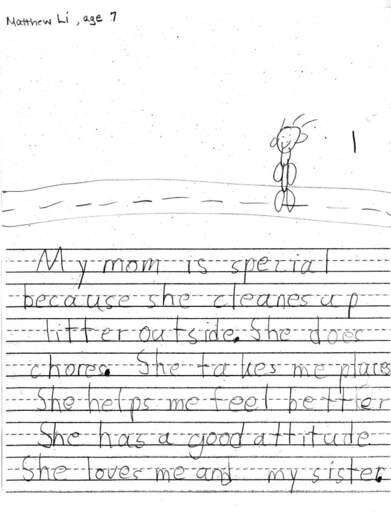 Matthew Li, age 7
My mom is special
because she cleanes up
litter outside. She does
chores. She takes me places
She helps me feel better
She has a good attitude
She loves me and my sister.